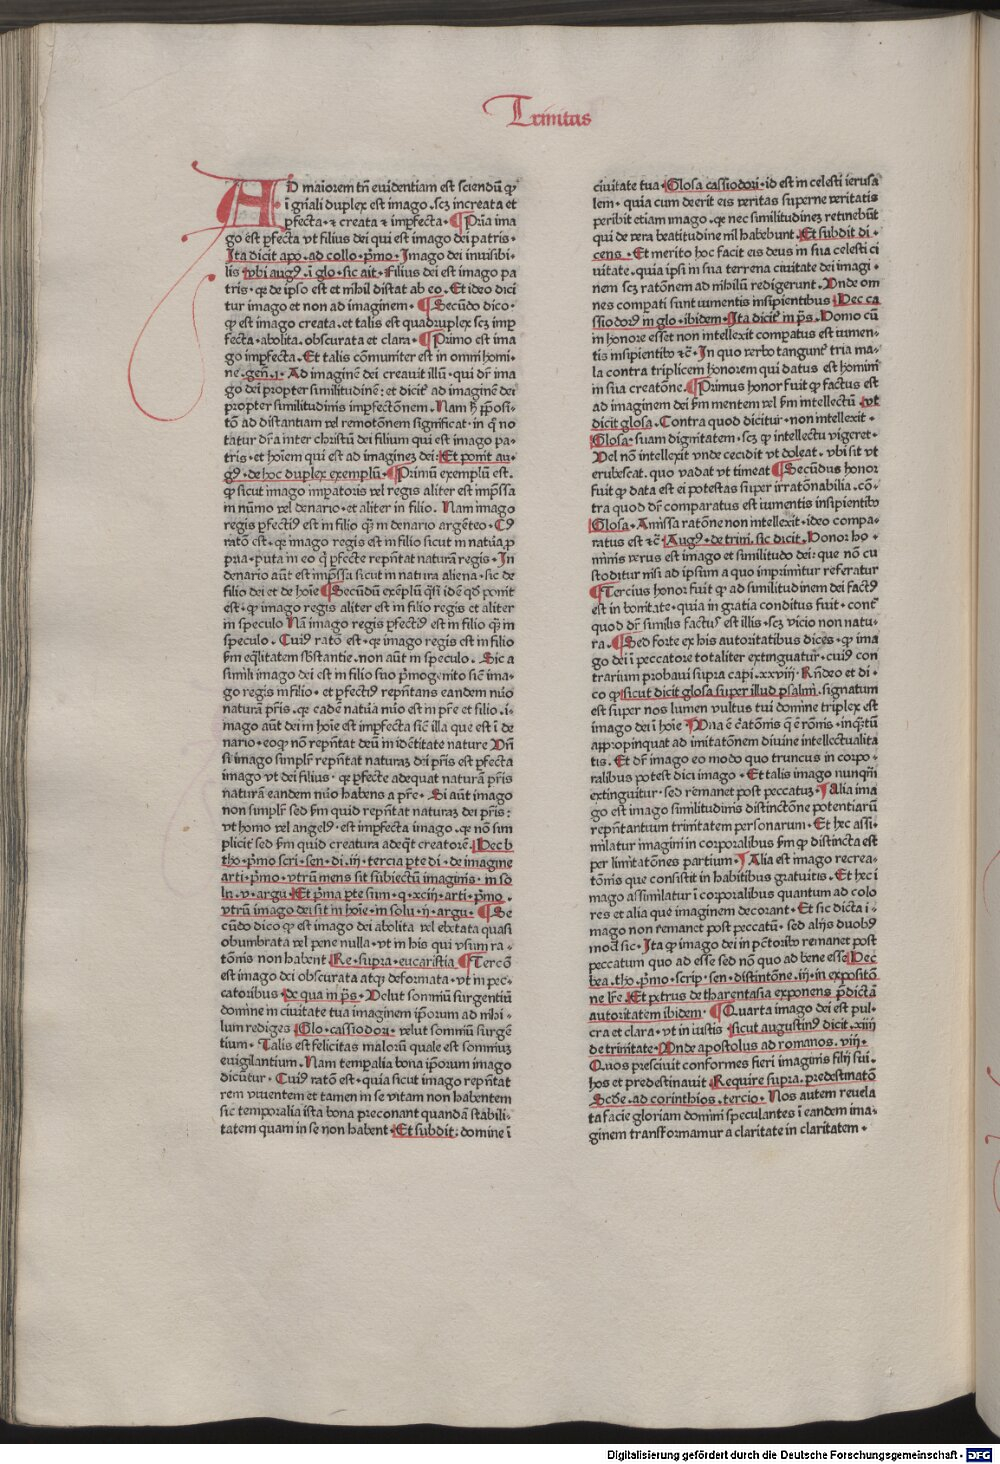 Trinitas
AD maiorem tñ euidentiam est sciendū ꝙ
ī gñali duplex est imago. scꝫ increata et
ꝑfecta. ⁊ creata ⁊ imꝑfecta. ¶ Pria ima
go est ꝑfecta vt filius dei qui est imago dei patris.
Ita dicit apo. ad collo. pͥmo. Imago dei inuisibi-
lis vbi augꝰ. ī glo. sic ait. Filius dei est imago pa
tris. qꝛ de ipso est et nihil distat ab eo. Et ideo dici
tur imago et non ad imaginem. ¶ Secūdo dico.
ꝙ est imago creata. et talis est quadruplex scꝫ imꝑ
fecta. abolita. obscurata et clara. ¶ Primo est ima
go imꝑfecta. Et talis cōmuniter est in omni homi-
ne. geñ. 1. Ad imaginē dei creauit illū. qui dr̄ ima
go dei propter similitudinē: et dicit᷑ ad imaginē dei
propter similitudinis imꝑfectōnem. Nam hͨ p̄posi-
tō ad distantiam vel remotōnem significat. in qͦ no
tatur dr̄a inter christū dei filium qui est imago pa-
tris. et hoīem qui est ad imaginez dei: Et ponit au-
gꝰ. de hoc duplex exemplū. ¶ Primū exemplū est.
ꝙ sicut imago imꝑatoris vel regis aliter est imp̄ssa
in nūmo vel denario. et aliter in filio. Nam imago
regis ꝑfectiꝰ est in filio qͣ̄ in denario argēteo. Cꝰ
ratō est. qꝛ imago regis est in filio sicut in natūa ꝓ
pria. puta in eo qͥ ꝑfecte rep̄ntat naturā regis. In
denario aūt est imp̄ssa sicut in natura aliena. sic de
filio dei et de hoīe ¶ Secūdū exēplū qͣsi idē qď ponit
est. ꝙ imago regis aliter est in filio regis et aliter
in speculo Nā imago regis ꝑfectiꝰ est in filio qͣ̄ in
speculo. Cuiꝰ ratō est. qꝛ imago regis est in filio
ẜm eq̄litatem sb̄stantie. non aūt in speculo. Sic a
simili imago dei est in filio suo pͥmogenito siē ima-
go regis in filio. et ꝑfectiꝰ rep̄ntans eandem nūo
naturā pr̄is. qꝛ eadē natūa nūo est in pr̄e et filio. i-
mago aūt dei in hoīe est imꝑfecta siē illa que est ī de
nario. eoꝙ nō rep̄ntat deū in idētitate nature Vñ
si imago simplr̄ rep̄ntat naturaꝫ dei pr̄is est ꝑfecta
imago vt dei filius. qꝛ ꝑfecte adequat naturā pr̄is
naturā eandem nūo habens a pr̄e. Si aūt imago
non simplr̄ sed ẜm quid rep̄ntat naturaꝫ dei pr̄is:
vt homo vel angelꝰ. est imꝑfecta imago. qꝛ nō sim
pliciť sed ẜm quid creatura adeq̄t creatorē. Hec b
tho. pͥmo scri. sen. di. iij. tercia ꝑte di. de imagine
arti. pͥmo. vtrū mens sit subiectū imaginis. in so
ln. v. argu. Et pͥma ꝑte sum. q. xciij. arti. pͥmo.
vtrū imago dei sit in hoīe. in solu. ij. argu. ¶ Se
cūdo dico ꝙ est imago dei abolita vel elatata quasi
obumbrata vel pene nulla. vt in his qui vsum ra-
tōnis non habent. Re. supra. eucaristia ¶ Tercō
est imago dei obscurata atqꝫ deformata. vt in pec-
catoribus. de qua in pͣs. Velut somniū surgentiū
domine in ciuitate tua imaginem ip̄orum ad nihi-
lum rediges. Glo. cassiodori. velut somniū surgē
tium. Talis est felicitas malorū quale est somniuꝫ
euigilantium. Nam temꝑalia bona ip̄orum imago
dicūtur. Cuiꝰ ratō est. quia sicut imago rep̄ntat
rem viuentem et tamen in se vitam non habentem
sic temporalia ista bona preconant quandā stabili-
tatem quam in se non habent. Et subdit: domine ī
ciuitate tua. Glosa cassiodori. id est in celesti ierusa
lem. quia cum deerit eis veritas superne veritatis
peribit etiam imago. qꝛ nec similitudinez retinebūt
qui de vera beatitudine nil habebunt. Et subdit di-
cens. Et merito hoc facit eis deus in sua celesti ci
uitate. quia ipsi in sua terrena ciuitate dei imagi-
nem scꝫ ratōnem ad nihilū redigerunt. Vnde om
nes compati sunt iumentis insipientibus. Hec ca
ssiodorꝰ in glo. ibidem. Ita dicit᷑ in pͣs. Homo cū
in honore esset non intellexit compatus est iumen-
tis insipientibꝰ ⁊c̄. In quo verbo tangunt᷑ tria ma-
la contra triplicem honorem qui datus est homini
in sua creatōne. ¶ Primus honor fuit ꝙ factus est
ad imaginem dei ẜm mentem vel ẜm intellectū. vt
dicit glosa. Contra quod dicitur. non intellexit.
Glosa. suam dignitatem. scꝫ ꝙ intellectu vigeret.
Vel nō intellexit vnde cecidit vt doleat. vbi sit vt
erubescat. quo vadat vt timeat ¶ Secūdus honor
fuit ꝙ data est ei potestas super irratōnabilia. cō-
tra quod dr̄ comparatus est iumentis insipientibꝰ
Glosa. Amissa ratōne non intellexit. ideo compa-
ratus est ⁊c̄. Augꝰ. de trini. sic dicit. Honor ho-
minis verus est imago et similitudo dei: que nō cu
stoditur nisi ad ipsum a quo imprimitur referatur
¶ Tercius honor fuit ꝙ ad similitudinem dei factꝰ
est in bonitate. quia in gratia conditus fuit. contͣ
quod dr̄ similis factus̄ est illis. scꝫ vicio non natu-
ra. ¶ Sed forte ex his autoritatibus dices. ꝙ ima
go dei ī peccatore totaliter extinguatur. cuiꝰ con
trarium probaui supra capi. xxviij. Rn̄deo et di-
co ꝙ sicut dicit glosa super illud psalmi. signatum
est super nos lumen vultus tui domine triplex est
imago dei ī hoīe Vna ē c̄atōnis q̄ ē rōnis. inqͣtū
appropinquat ad imitatōnem diuine intellectualita
tis. Et dr̄ imago eo modo quo truncus in corpo-
ralibus potest dici imago. Et talis imago nunqͣ̄
extinguitur. sed remanet post peccatuꝫ. Alia ima
go est imago similitudinis distinctōne potentiarū
rep̄ntantium trinitatem personarum. Et hec assi-
milatur imagini in corporalibus ẜm ꝙ distincta est
per limitatōnes partium. ¶ Alia est imago recrea-
tōnis que consistit in habitibus gratuitis. Et hec i
mago assimilatur ī corporalibus quantum ad colo
res et alia que imaginem decorant. Et sic dicta i-
mago non remanet post peccatū. sed alijs duobꝰ
modis sic. Ita ꝙ imago dei in pc̄toribꝰ remanet post
peccatum quo ad esse sed nō quo ad bene esse Hec
bea. tho. pͥmo. scrip. sen. distintōne. iij. in expositō
ne lr̄e. Et petrus de tharentasia exponens p̄dictā
autoritatem ibidem. ¶ Quarta imago dei est pul-
cra et clara. vt in iustis. sicut augustinꝰ dicit. xiiij
de trinitate. Vnde apostolus ad romanos. viij.
Quos presciuit conformes fieri imaginis filij sui.
hos et predestinauit. Require supra. predestinatō
Scd̄e. ad corinthios. tercio. Nos autem reuela
ta facie gloriam domini speculantes ī eandem ima-
ginem transformamur a claritate in claritatem.
Digitalisierung gefördert durch die Deutsche Forschungsgemeinschaft - DFG